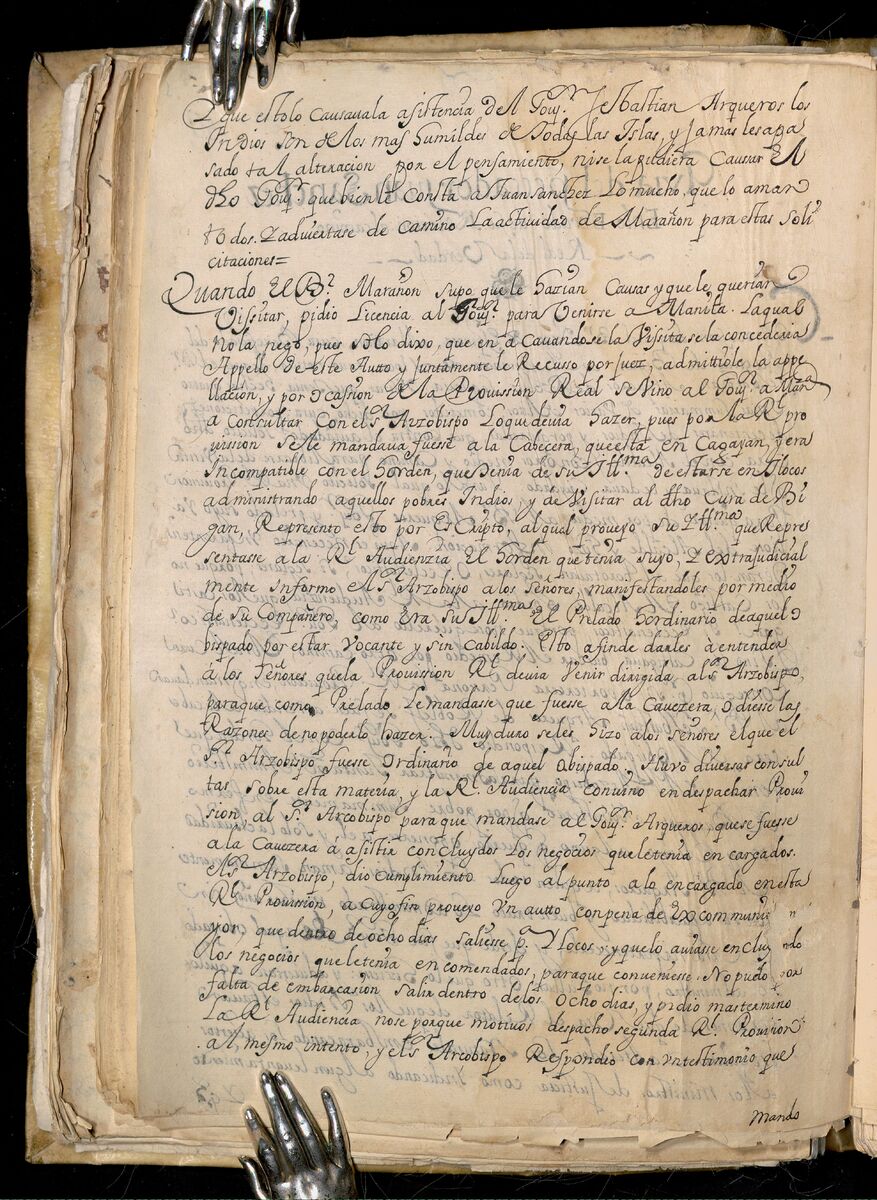 Y que esto lo causaua la asistencia del Gou.ʳ Sebastian Arqueros los
Yndios son de los mas humildes de todas las Islas, y jamas les a pa
sado tal alteracion por el pensamiento, ni se la pudiera causar El
dho Gou.ʳ que bien le consta a Juan sanchez Lo mucho, que lo aman
todos. Y aduiertase de camino La actividad de Marañon para estas soli
citaciones=
Quando El B.ʳ Marañon supo que le hazian Causas y que le querian
Vissitar, pidio Licencia al Gou.ʳ para Venirse a Manila. La qual
No la nego, pues solo dixo, que en a Cauandose la Vissita se la concederia
Appello de este Autto y juntamente le Recusso por juez; admittiole la appe
llacion, y por ocassion de la Prouission Real se vino al Gou.ʳ a Mara
a Consultar Con el s.ʳ Arzobispo Lo que deuia hazer, pues por la R.ˡ pro
uission se le mandaua fuesse a la Cabecera, que esta en Cagayan, y era
Incompatible con el horden, que tenia de su Ill.ᵐᵃ de estarse en Ilocos
administrando aquellos pobres Indios, y de Visitar al dho Cura de Bi
gan, Represento esto por Escripto, al qual proueyo su Ill.ᵐᵃ que Repre
sentasse a la R.ˡ Audienzia El horden que tenia suyo, Y extrajudicial
mente informo El s.ʳ Arzobispo a los señores, manifestandoles por medio
de su Compañero, como era su Ill.ᵐᵃ El Prelado hordinario de aquel o
bispado por estar Vocante y sin Cabildo. Esto a fin de darles à entender
á los señores que la Prouission R.ˡ deuia Venir dirigida al s.ʳ Arzobispo,
para que como Prelado le mandasse que fuesse a la Cauezera, o diesse las
Razones de no poderlo hazer. Muy duro seles hizo a los señores el que el
S.ʳ Arzobispo fuesse Ordinario de aquel Obispado. Huvo diuersas consul
tas sobre esta materia, y la R.ˡ Audiencia conuino en despachar Proui
sion, al S.ʳ Arcobispo para que mandase al Gou.ʳ Arqueros, que se fuesse
a la Cauezera á asistir concluydos Los negocios que le tenia en cargados.
El s.ʳ Arzobispo, dio cumplimiento Luego al punto a lo encargado en esta
R.ˡ Prouission, a cuyo fin proueyo Vn autto con pena de Excommuni n
yor que dentro de ocho dias saliesse p.ᵃ Ylocos y que lo auiasse en cluy ndo
los negocios que le tenia en comendados, para que conueniesse. No pudo por
falta de embarcasion salir dentro de los ocho dias, y pidio mas termino
La R.ˡ Audiencia no se porque motiuos despacho segunda R.ˡ Prouision
al mesmo intento, y el s.ʳ Arcobispo Respondio con Vn testimonio que
Mando